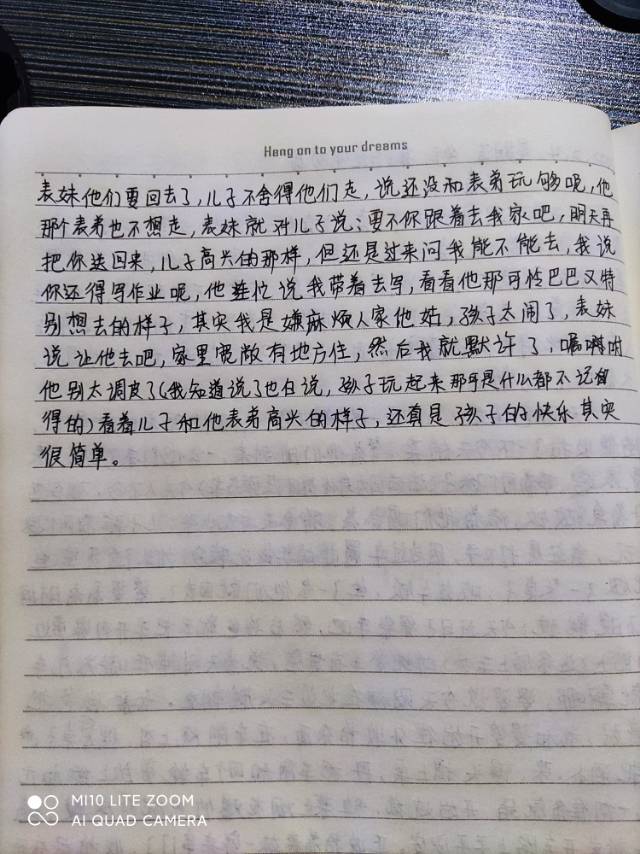 Hang on to your dreams
表妹他们要回去了,儿子不舍得他们走,说还没和表弟玩够呢,他
那个表弟也不想走,表妹就对儿子说:要不你跟着去我家吧,明天再
把你送回来,儿子高兴的那样,但还是过来问我能不能去,我说
你还得写作业呢,他连忙说我带着去写,看看他那可怜巴巴又特
别想去的样子,其实我是嫌麻烦人家他姑,孩子太闹了,表妹
说让他去吧,家里宽敞有地方住,然后我就默许了,嘱咐
他别太调皮了(我知道说了也白说,孩子玩起来那可是什么都不记
得的)看着儿子和他表弟高兴的样子,还真是孩子的快乐其实
很简单。
MI10 LITE ZOOM
AI QUAD CAMERA